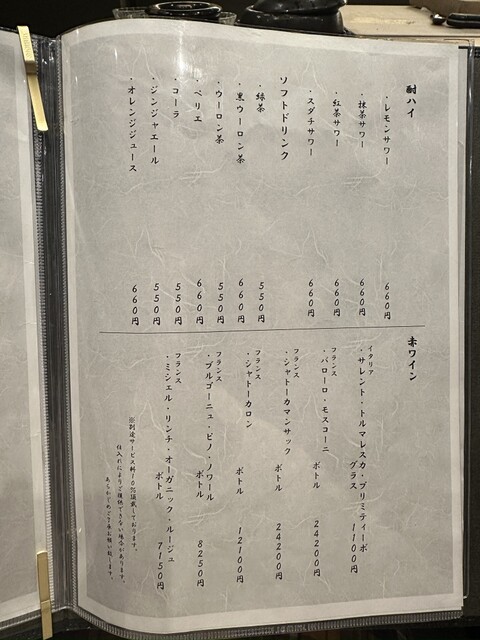 酎ハイ
・レモンサワー 660円
・抹茶サワー 660円
・紅茶サワー 660円
・スダチサワー 660円
ソフトドリンク
・緑茶 550円
・黒ウーロン茶 660円
・ウーロン茶 550円
・ペリエ 660円
・コーラ 550円
・ジンジャエール 550円
・オレンジジュース 660円
赤ワイン
イタリア
・サレント・トルマレスカ・プリミティーボ
グラス 1100円
フランス
・バローロ・モスコーニ
ボトル 24200円
フランス
・シャトーカマンサック
ボトル 24200円
フランス
・シャトーカロン
ボトル 12100円
フランス
・ブルゴーニュ・ピノ・ノワール
ボトル 8250円
フランス
・ミシェル・リンチ・オーガニック・ルージュ
ボトル 7150円
※別途サービス料10%頂戴しております。
仕入れによりご提供できない場合があります。
あらかじめご了承お願い致します。